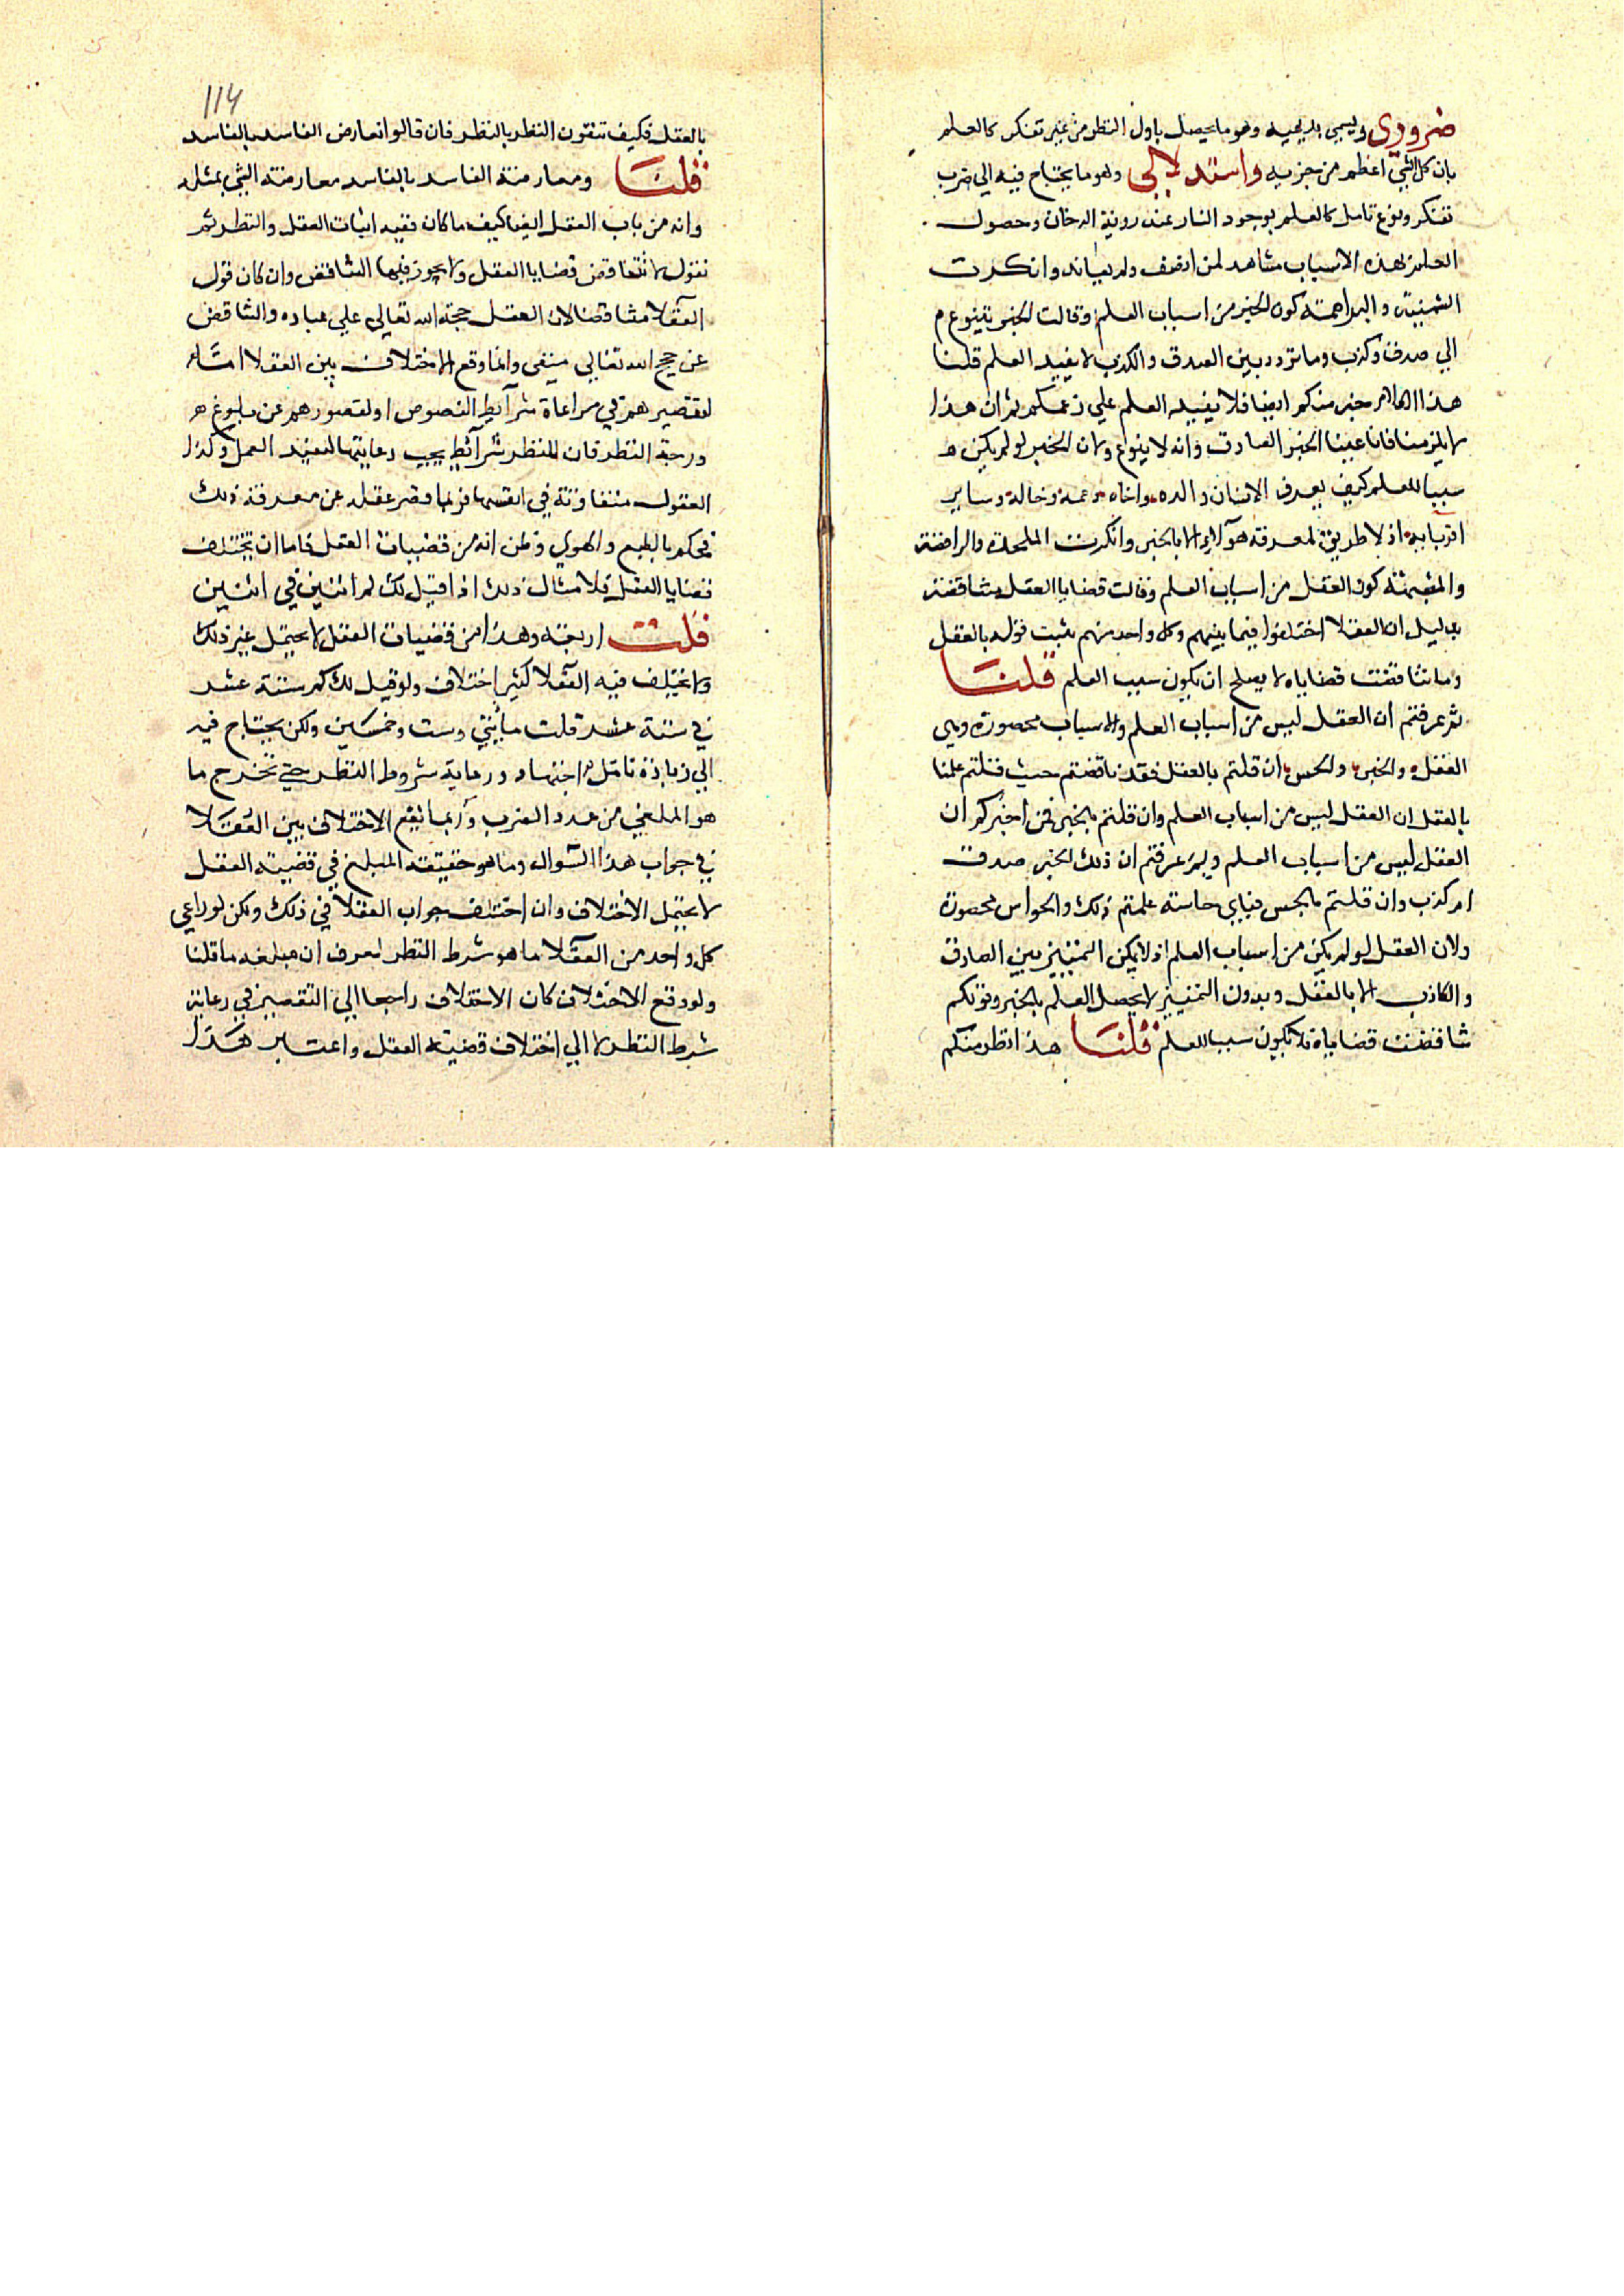 ضروري ويسمي بديهية وهو ما يحصل باول النظر من غير تفكر كالعلم
بان كل الشي اعظم من جزيه واستدلالي وهو ما يحتاج فيه الي ضرب
تفكر ونوع تامل كالعلم بوجود النار عند روية الدخان وحصول
العلم بهذه الاسباب مشاهد لمن انصف ولم يعاند وانكرت
السمنية والبراهمة كون الخبر من اسباب العلم وقالت الخبر يتنوع
الي صدق وكذب وما تردد بين الصدق والكذب لا يفيد العلم قلنا
هذا الكلام خبر منكم ايضا فلا يفيد العلم علي زعمكم ثم ان هذا
لا يلزمنا فانا عينا الخبر الصادق وانه لا يتنوع ولان الخبر لو لم يكن
سببا للعلم كيف يعرف الانسان والده واخاه وعمه وخاله وساير
اقربايه اذ لا طريق لمعرفة هولاء الا بالخبر وانكرت الملحدة والرافضة
والمشبهة كون العقل من اسباب العلم وقالت قضايا العقل متناقضة
بدليل ان العقلا اختلفوا فيما بينهم وكل واحد منهم يثبت قوله بالعقل
وما تناقضت قضاياه لا يصلح ان يكون سبب العلم قلنا
ثم عرفتم ان العقل ليس من اسباب العلم والاسباب محصورة وهي
العقل والخبر والحس ان قلتم بالعقل فقد ناقضتم حيث قلتم علمنا
بالعقل ان العقل ليس من اسباب العلم وان قلتم بالخبر فمن اخبركم ان
العقل ليس من اسباب العلم وبم عرفتم ان ذلك الخبر صدق
ام كذب وان قلتم بالحس فباي حاسة علمتم ذلك والحواس محصورة
ولان العقل لو لم يكن من اسباب العلم اذ لا يمكن التمييز بين الصادق
والكاذب الا بالعقل وبدون التمييز لا يحصل العلم بالخبر وقولكم
تناقضت قضاياه فلا يكون سببا للعلم قلنا هذا نظر منكم
114
بالعقل فكيف تنفون النظر بالنظر فان قالوا نعارض الفاسد بالفاسد
قلنا ومعارضة الفاسد بالفاسد معارضة الشي بمثله
وانه من باب العقل ايضا كيف ما كان ففيه اثبات العقل والنظر ثم
نقول لا تتناقض قضايا العقل ولا يجوز فيها التناقض وان كان قول
العقلا متناقضا لان العقل حجة الله تعالي علي عباده والتناقض
عن حجج الله تعالي منفي وانما وقع الاختلاف بين العقلا اما
لتقصيرهم في مراعاة شرايط النصوص او لقصورهم عن بلوغ
درجة النظر فان للنظر شرائط يجب رعايتها لتفيد العمل وكذا
العقول متفاوتة في انفسها فربما قصر عقله عن معرفة ذلك
فحكم بالطبع والهوي وظن انه من قضيات العقل فاما ان تختلف
قضايا العقل فلا مثال ذلك اذا قيل لك كم اثنين في اثنين
قلت اربعة وهذا من قضيات العقل لا يحتمل غير ذلك
ولا يختلف فيه العقلا كثير اختلاف ولو قيل لك كم ستة عشر
في ستة عشر قلت مأيتي وست وخمسين ولكن يحتاج فيه
الي زيادة تامل واجتهاد ورعاية شروط النظر حتي تخرج ما
هو المبلغ من عدد الضرب وربما يقع الاختلاف بين العقلا
في جواب هذا السوال وما هو حقيقة المبلغ في قضية العقل
لا يحتمل الاختلاف وان اختلف جواب العقلا في ذلك ولكن لو راعي
كل واحد من العقلا ما هو شرط النظر لعرف ان مبلغه ما قلنا
ولو وقع الاختلاف كان الاختلاف راجعا الي التقصير في رعاية
شرط النظر لا الي اختلاف قضية العقل واعتبر هذا